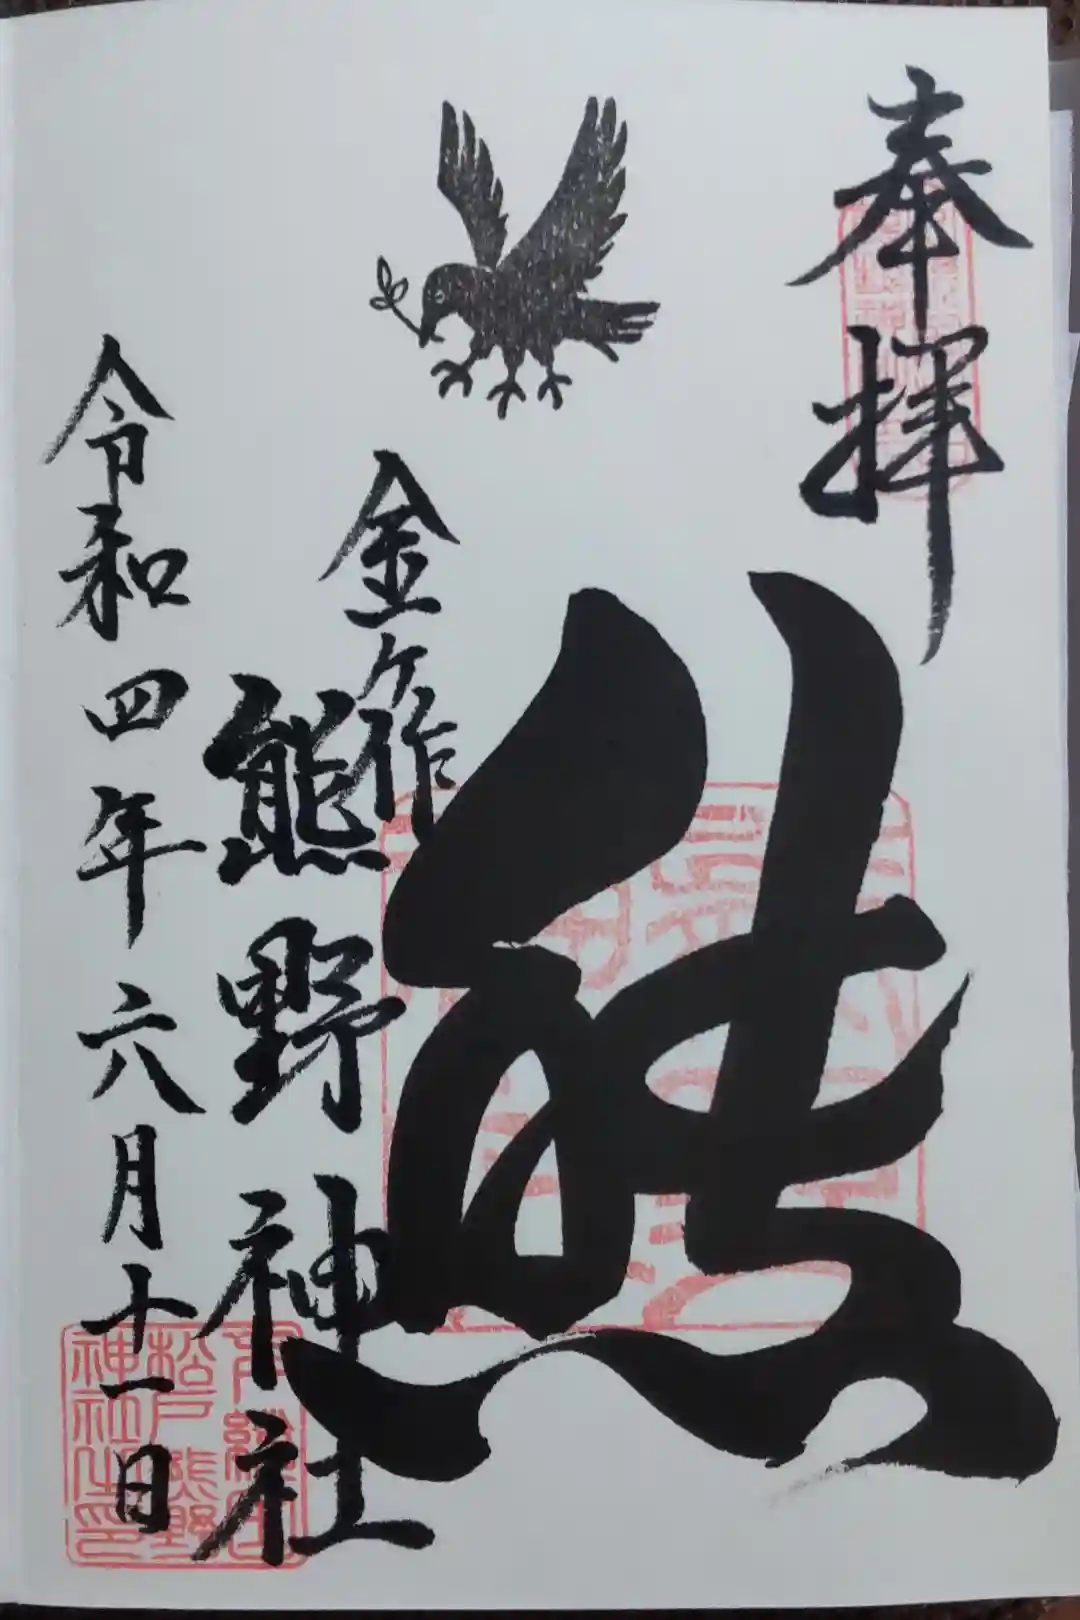 奉拝
熊
金ケ作
熊野神社
令和四年六月十一日
松戸熊野
神社之印